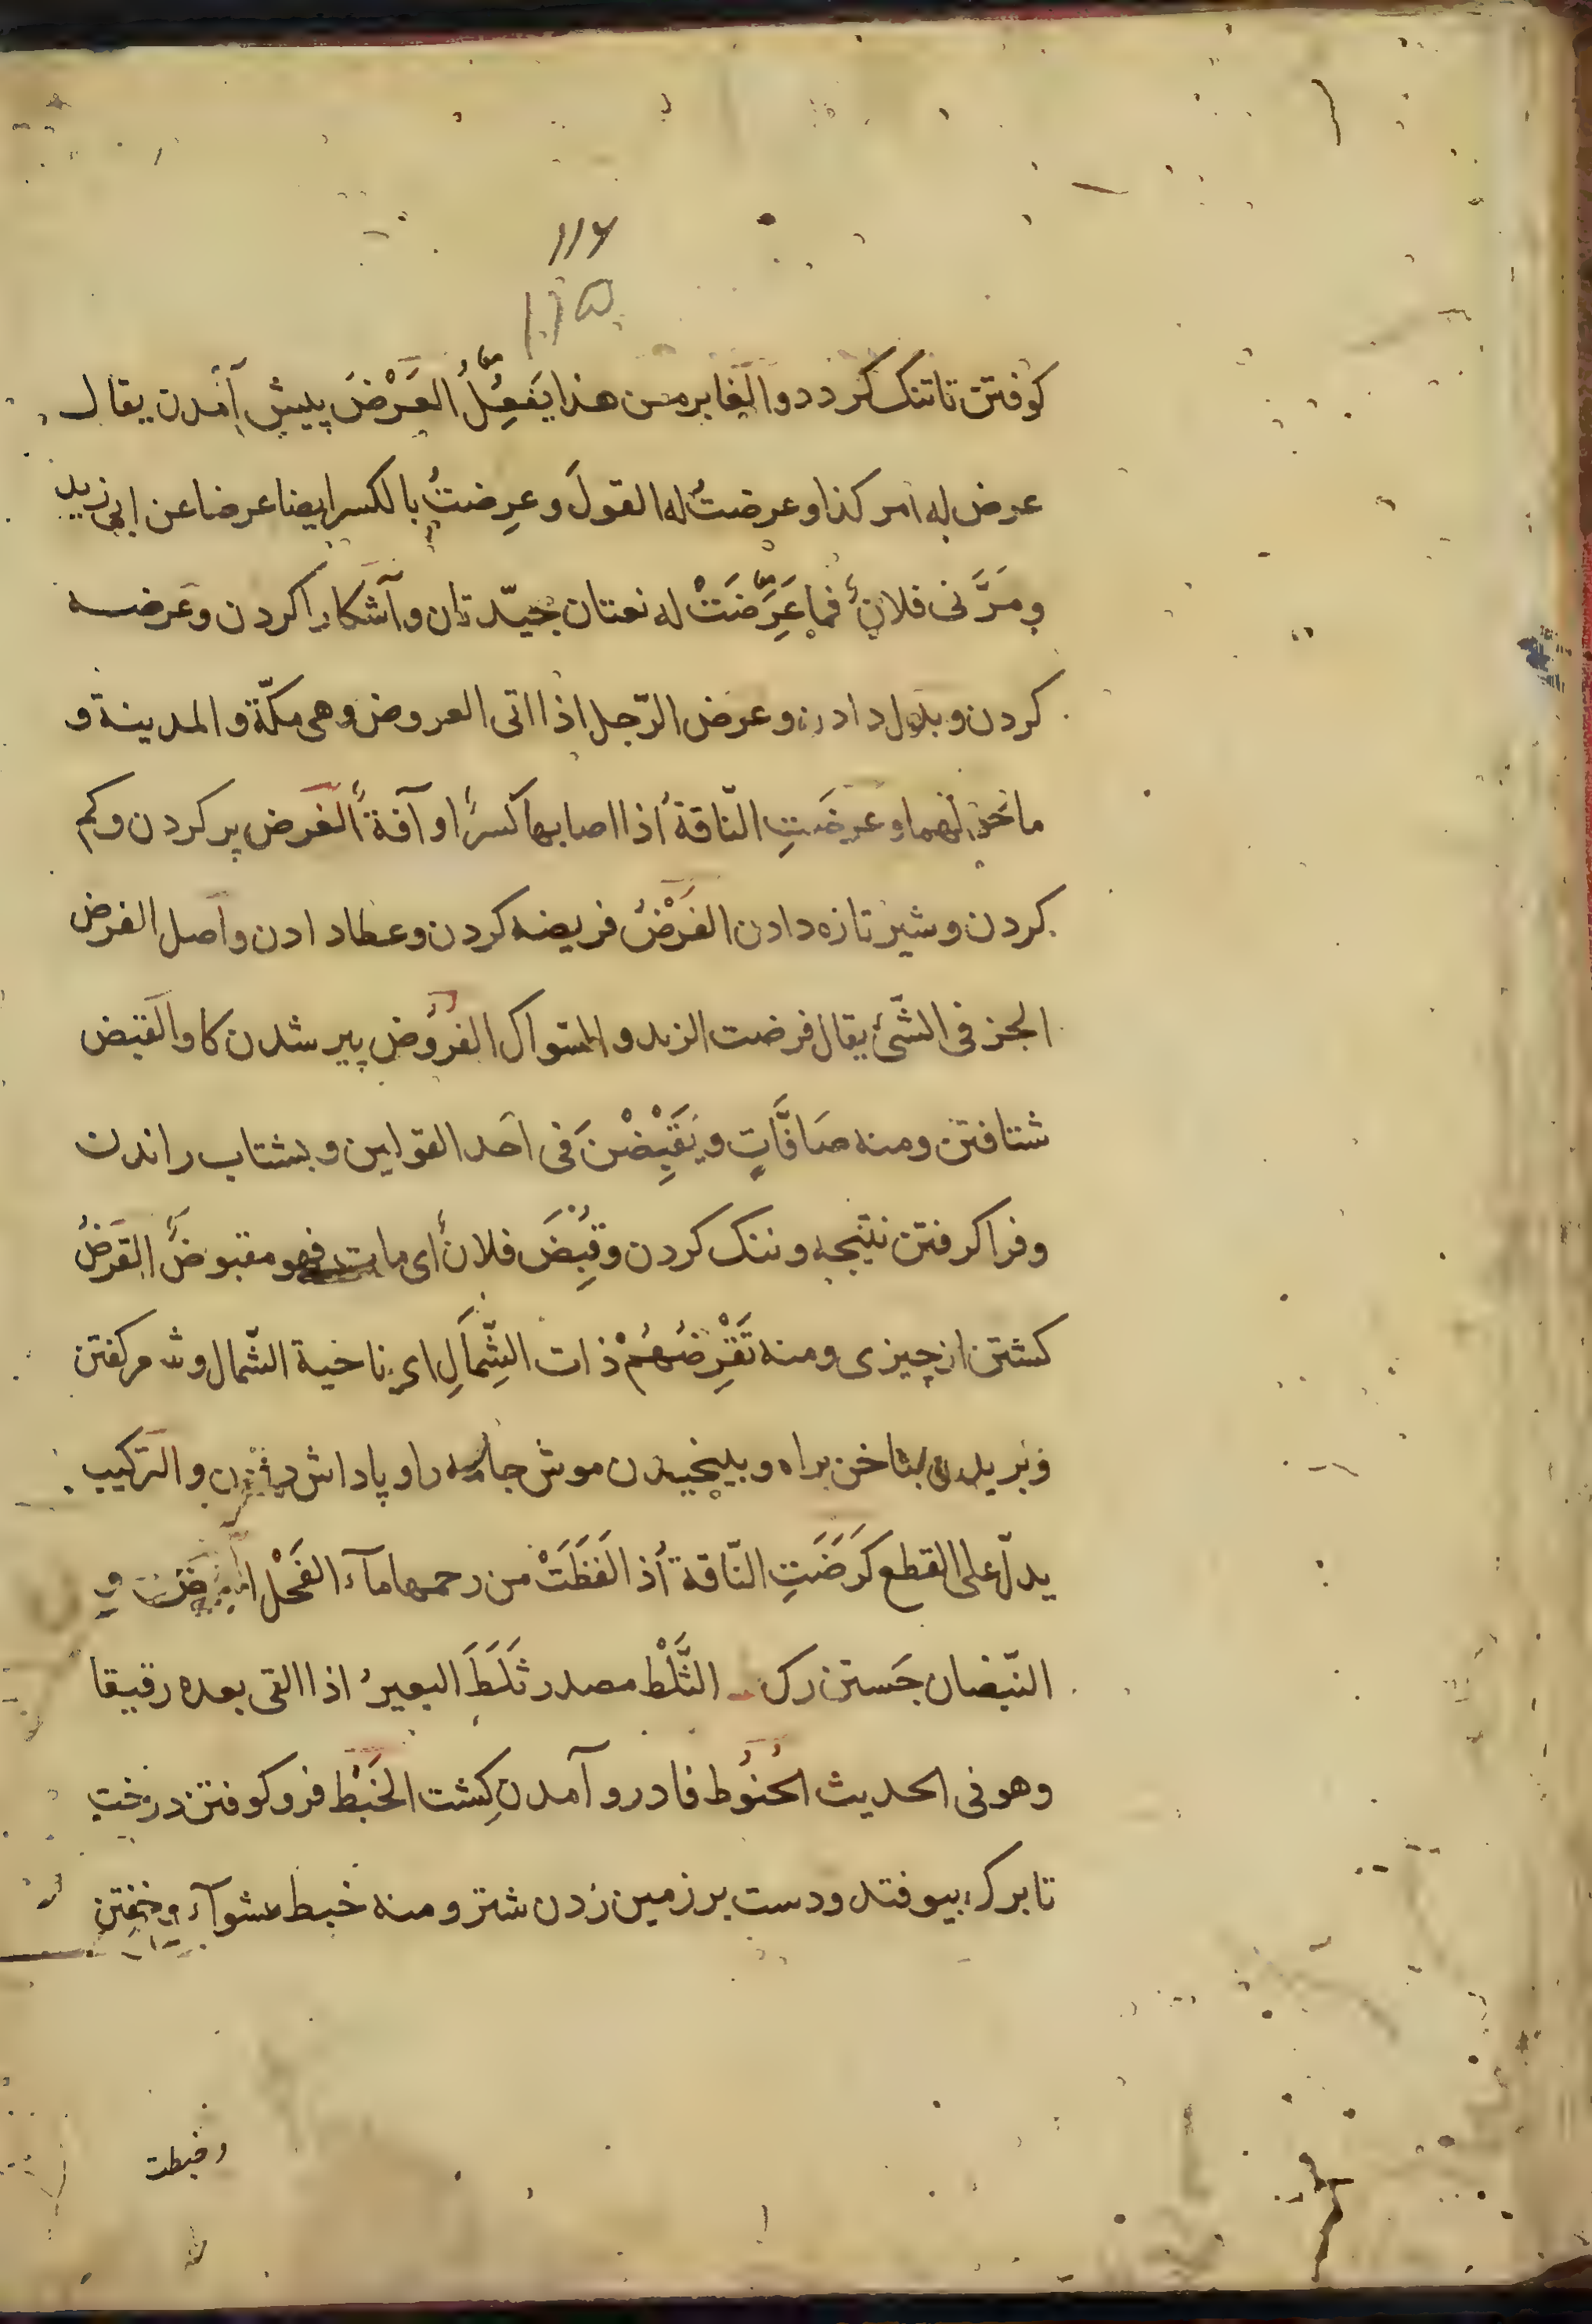 ١١٦
١١٥
كوفتن تا تنك كردد والغابر من هذا يَفعِلُ العَرْضَ پيش آمدن يقال
عرض له امر كذا وعرضتُ له القولَ وعرِضتُ بالكسر ايضا عرضا عن ابى زيد
ومَرَّنى فلانٌ فما عَرِّضَتْ له نعتان جيّدتان وآشكارا كردن وعرضه
كردن وبدل دادن وعرض الرّجل اذا اتى العروض وهى مكّة والمدينة و
ما حولهما وعرضَتِ النّاقة اذا اصابها كسرٌ او آفةٌ الغَرض پر كردن وكم
كردن وشير تازه دادن الفَرْضُ فريضه كردن وعطا دادن واصل الفرض
الجز فى الشّئ يقال فرضت الزند والمسواك الفرُوض پير شدن كاو القبض
شتافتن ومنه صَافَّاتٍ ويَقْبِضْنَ فى احد القولين وبشتاب راندن
وفرا كرفتن نتيجه وننك كردن وقُبِضَ فلانٌ اى مات فهو مقبوضٌ القَرضُ
كشتن از چيزى ومنه تَقْرِضُهُمْ ذات الشِّمَالِ اى ناحية الشّمال وشعر كفتن
وبريدن بناخن براه وبيخبيدن موش جامه را وپاداش دادن والتركيب
يدلّ على القطع كَرَضَتِ النّاقة اذا لَفَظَتْ من رحمها مآء الفَحْل و
النّبضان جَستن رك الثَّلْط مصدر ثَلَطَ البعيرُ اذا القى بعده رقيقا
وهو فى الحديث الحُنُوط فا درو آمدن كِشت الخَبْط فرو كوفتن درخت
تا برك بيوفتد ودست بر زمين زدن شتر ومنه خبط عشوآء وخفتن
وخبطت